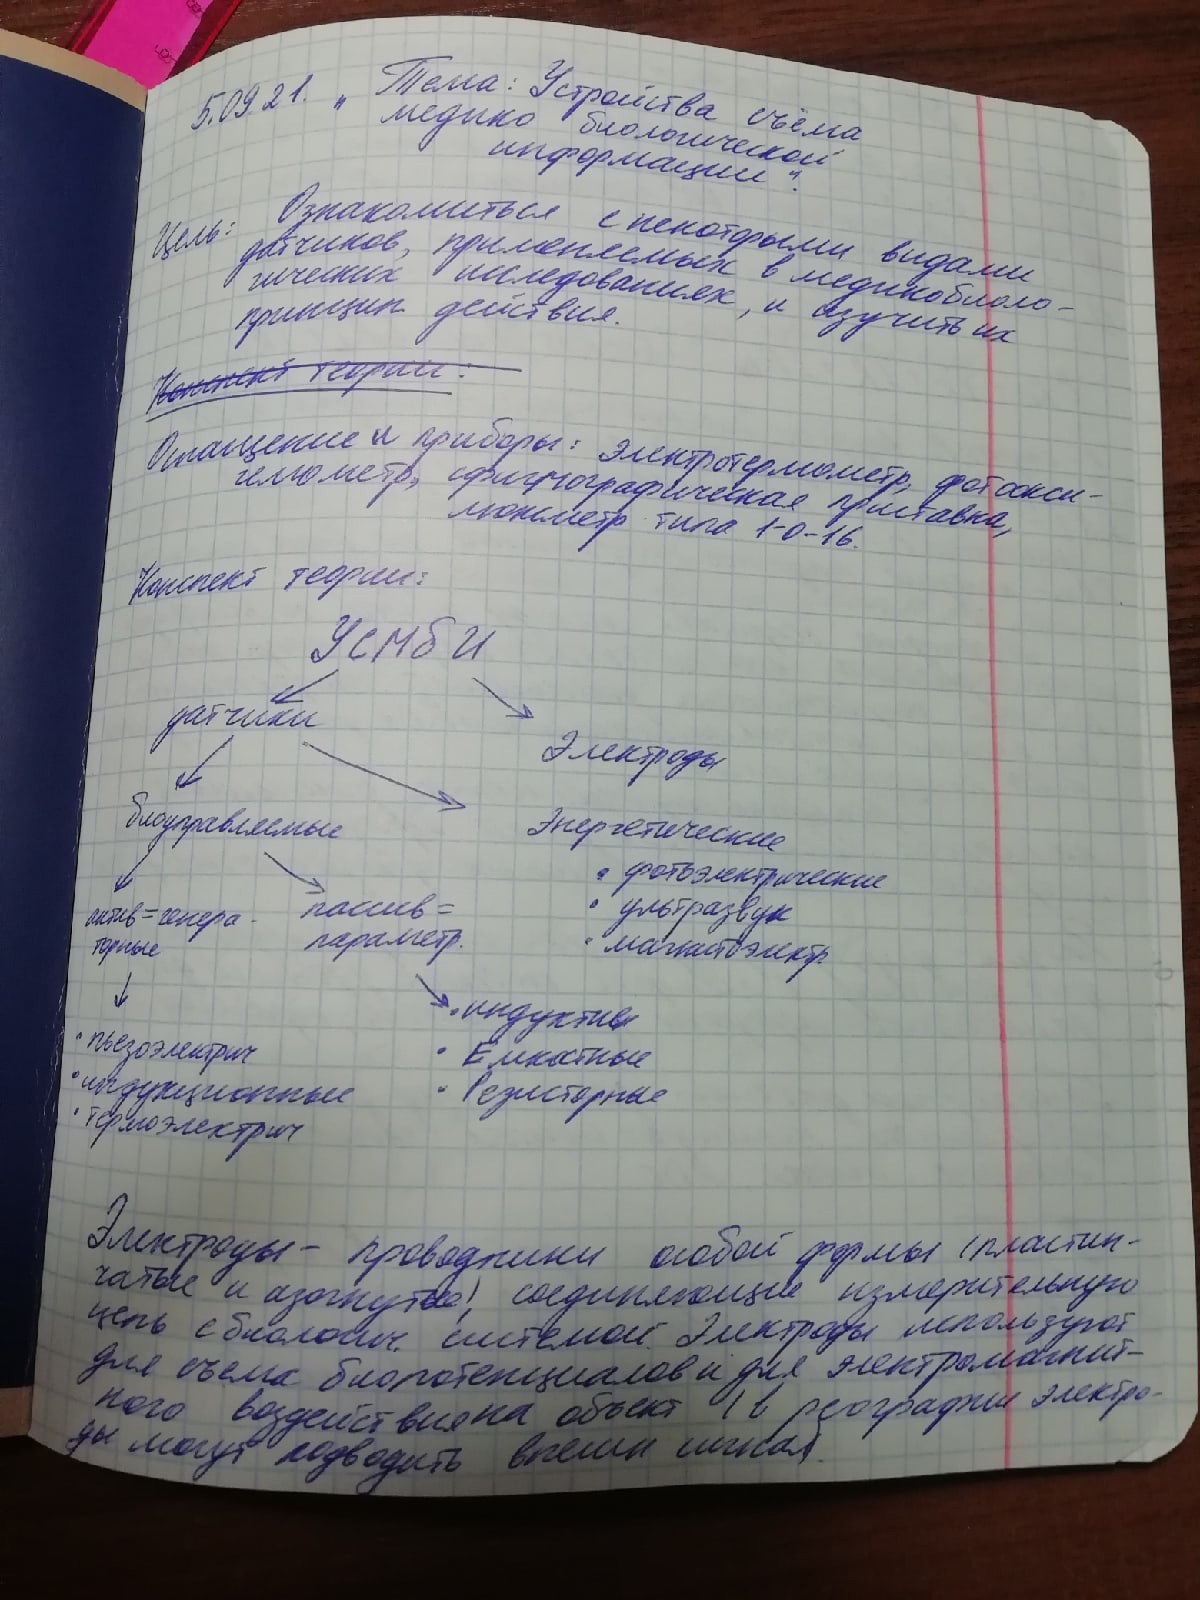 5.09.21. „Тема: Устройства съёма
медико биологической
информации".
Цель: Ознакомиться с некоторыми видами
датчиков, применяемых в медикобиоло-
гических исследованиях, и изучить их
принцип действия.
Конспект теории:
Оснащение и приборы: электротермометр, фотоокси-
гемометр, сфигмографическая приставка,
люксметр типа 1-0-16.
Конспект теории:
УСМБИ
датчики
Электроды
биоуправляемые
Энергетические
• фотоэлектрические
• ультразвук
• магнитоэлектр.
актив=генера-
торные
пассив=
параметр.
• пьезоэлектрич
• индукционные
• термоэлектрич
• индуктив
• Емкостные
• Резисторные
Электроды - проводники особой формы (пластин-
чатые и), соединяющие измерительную
цепь с биологич. системой. Электроды используют
для съема биопотенциалов и для электромагнит-
ного воздействия на объект (в реографии электро-
ды могут подводить внешн сигнал.